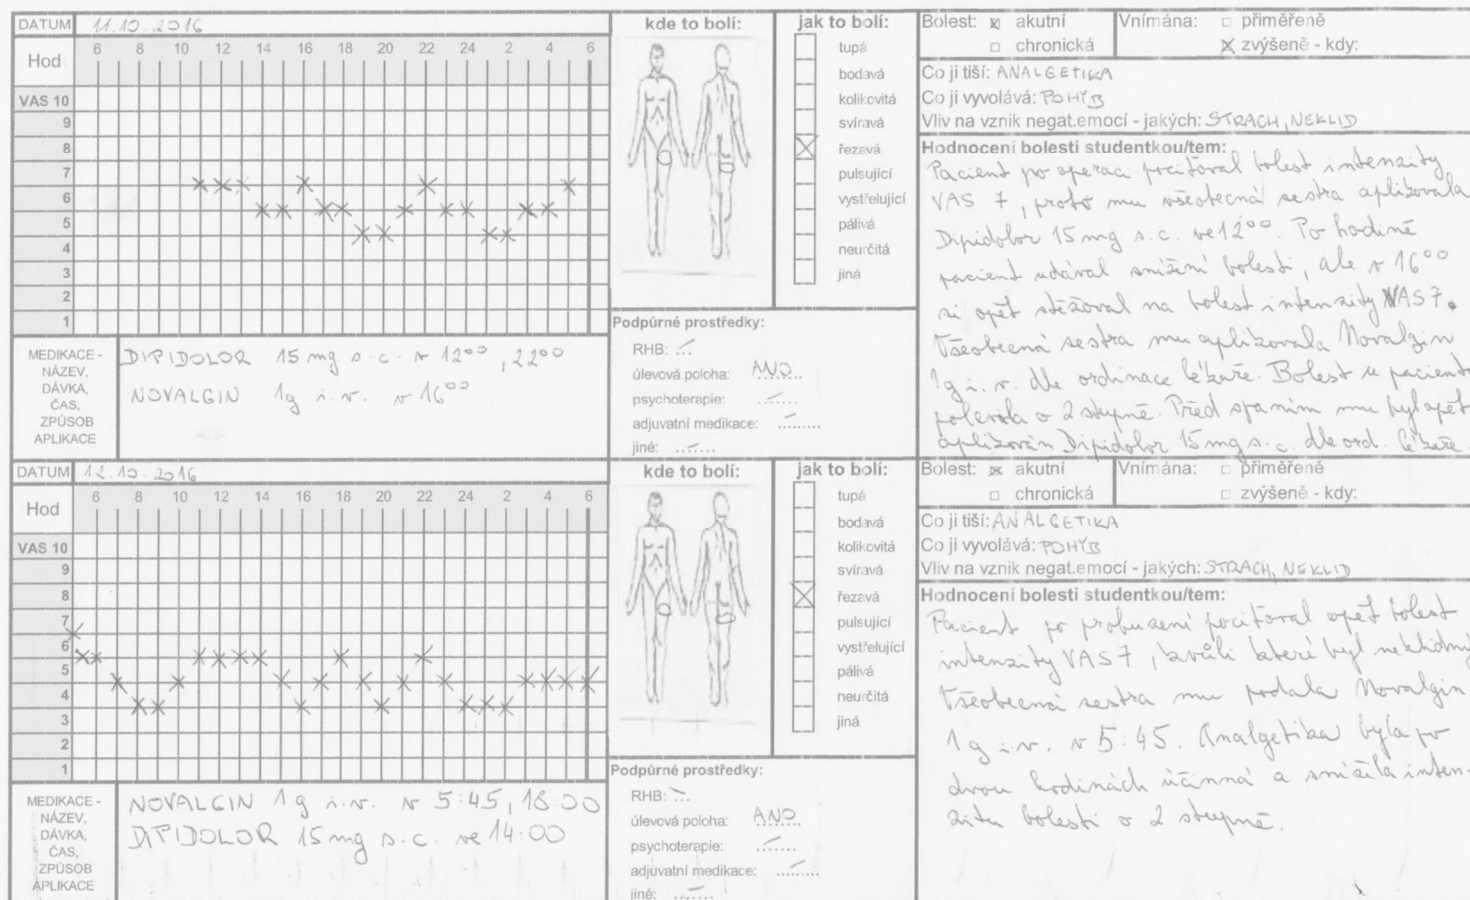 DATUM 11.10.2016
Hod 6 8 10 12 14 16 18 20 22 24 2 4 6
VAS 10
9
8
7
6
5
4
3
2
1
MEDIKACE - NÁZEV, DÁVKA, ČAS, ZPŮSOB APLIKACE
DIPIDOLOR 15 mg s.c. v 12⁰⁰, 22⁰⁰
NOVALGIN 1g i.v. v 16⁰⁰
kde to bolí:
jak to bolí:
tupá
bodavá
kolikovitá
svíravá
řezavá
pulsující
vystřelující
pálivá
neurčitá
jiná
Podpůrné prostředky:
RHB:
úlevová poloha: ANO
psychoterapie:
adjuvatní medikace:
jiné:
Bolest: akutní
chronická
Vnímána: přiměřeně
zvýšeně - kdy:
Co ji tiší: ANALGETIKA
Co ji vyvolává: POHYB
Vliv na vznik negat.emocí - jakých: STRACH, NEKLID
Hodnocení bolesti studentkou/tem:
Pacient po operaci pociťoval bolest intenzity
VAS 7, proto mu všeobecná sestra aplikovala
Dipidolor 15 mg s.c. ve 12⁰⁰. Po hodině
pacient udával snížení bolesti, ale v 16⁰⁰
si opět stěžoval na bolest intenzity VAS 7.
Všeobecná sestra mu aplikovala Novalgin
1g i.v. dle ordinace lékaře. Bolest u pacienta
polevila o 2 stupně. Před spaním mu byl opět
aplikován Dipidolor 15 mg s.c. dle ord. lékaře.
DATUM 12.10.2016
Hod 6 8 10 12 14 16 18 20 22 24 2 4 6
VAS 10
9
8
7
6
5
4
3
2
1
MEDIKACE - NÁZEV, DÁVKA, ČAS, ZPŮSOB APLIKACE
NOVALGIN 1g i.v. v 5:45, 18:00
DIPIDOLOR 15 mg s.c. ve 14:00
kde to bolí:
jak to bolí:
tupá
bodavá
kolikovitá
svíravá
řezavá
pulsující
vystřelující
pálivá
neurčitá
jiná
Podpůrné prostředky:
RHB:
úlevová poloha: ANO
psychoterapie:
adjuvatní medikace:
jiné:
Bolest: akutní
chronická
Vnímána: přiměřeně
zvýšeně - kdy:
Co ji tiší: ANALGETIKA
Co ji vyvolává: POHYB
Vliv na vznik negat.emocí - jakých: STRACH, NEKLID
Hodnocení bolesti studentkou/tem:
Pacient po probuzení pociťoval opět bolest
intenzity VAS 7, kvůli které byl neklidný
Všeobecná sestra mu podala Novalgin
1g i.v. v 5:45. Analgetika byla po
dvou hodinách účinná a snížila inten-
zitu bolesti o 2 stupně.